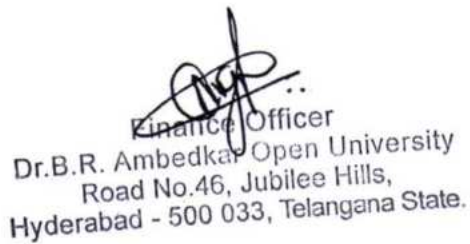 Finance Officer
Dr.B.R. Ambedkar Open University
Road No.46, Jubilee Hills,
Hyderabad - 500 033, Telangana State.